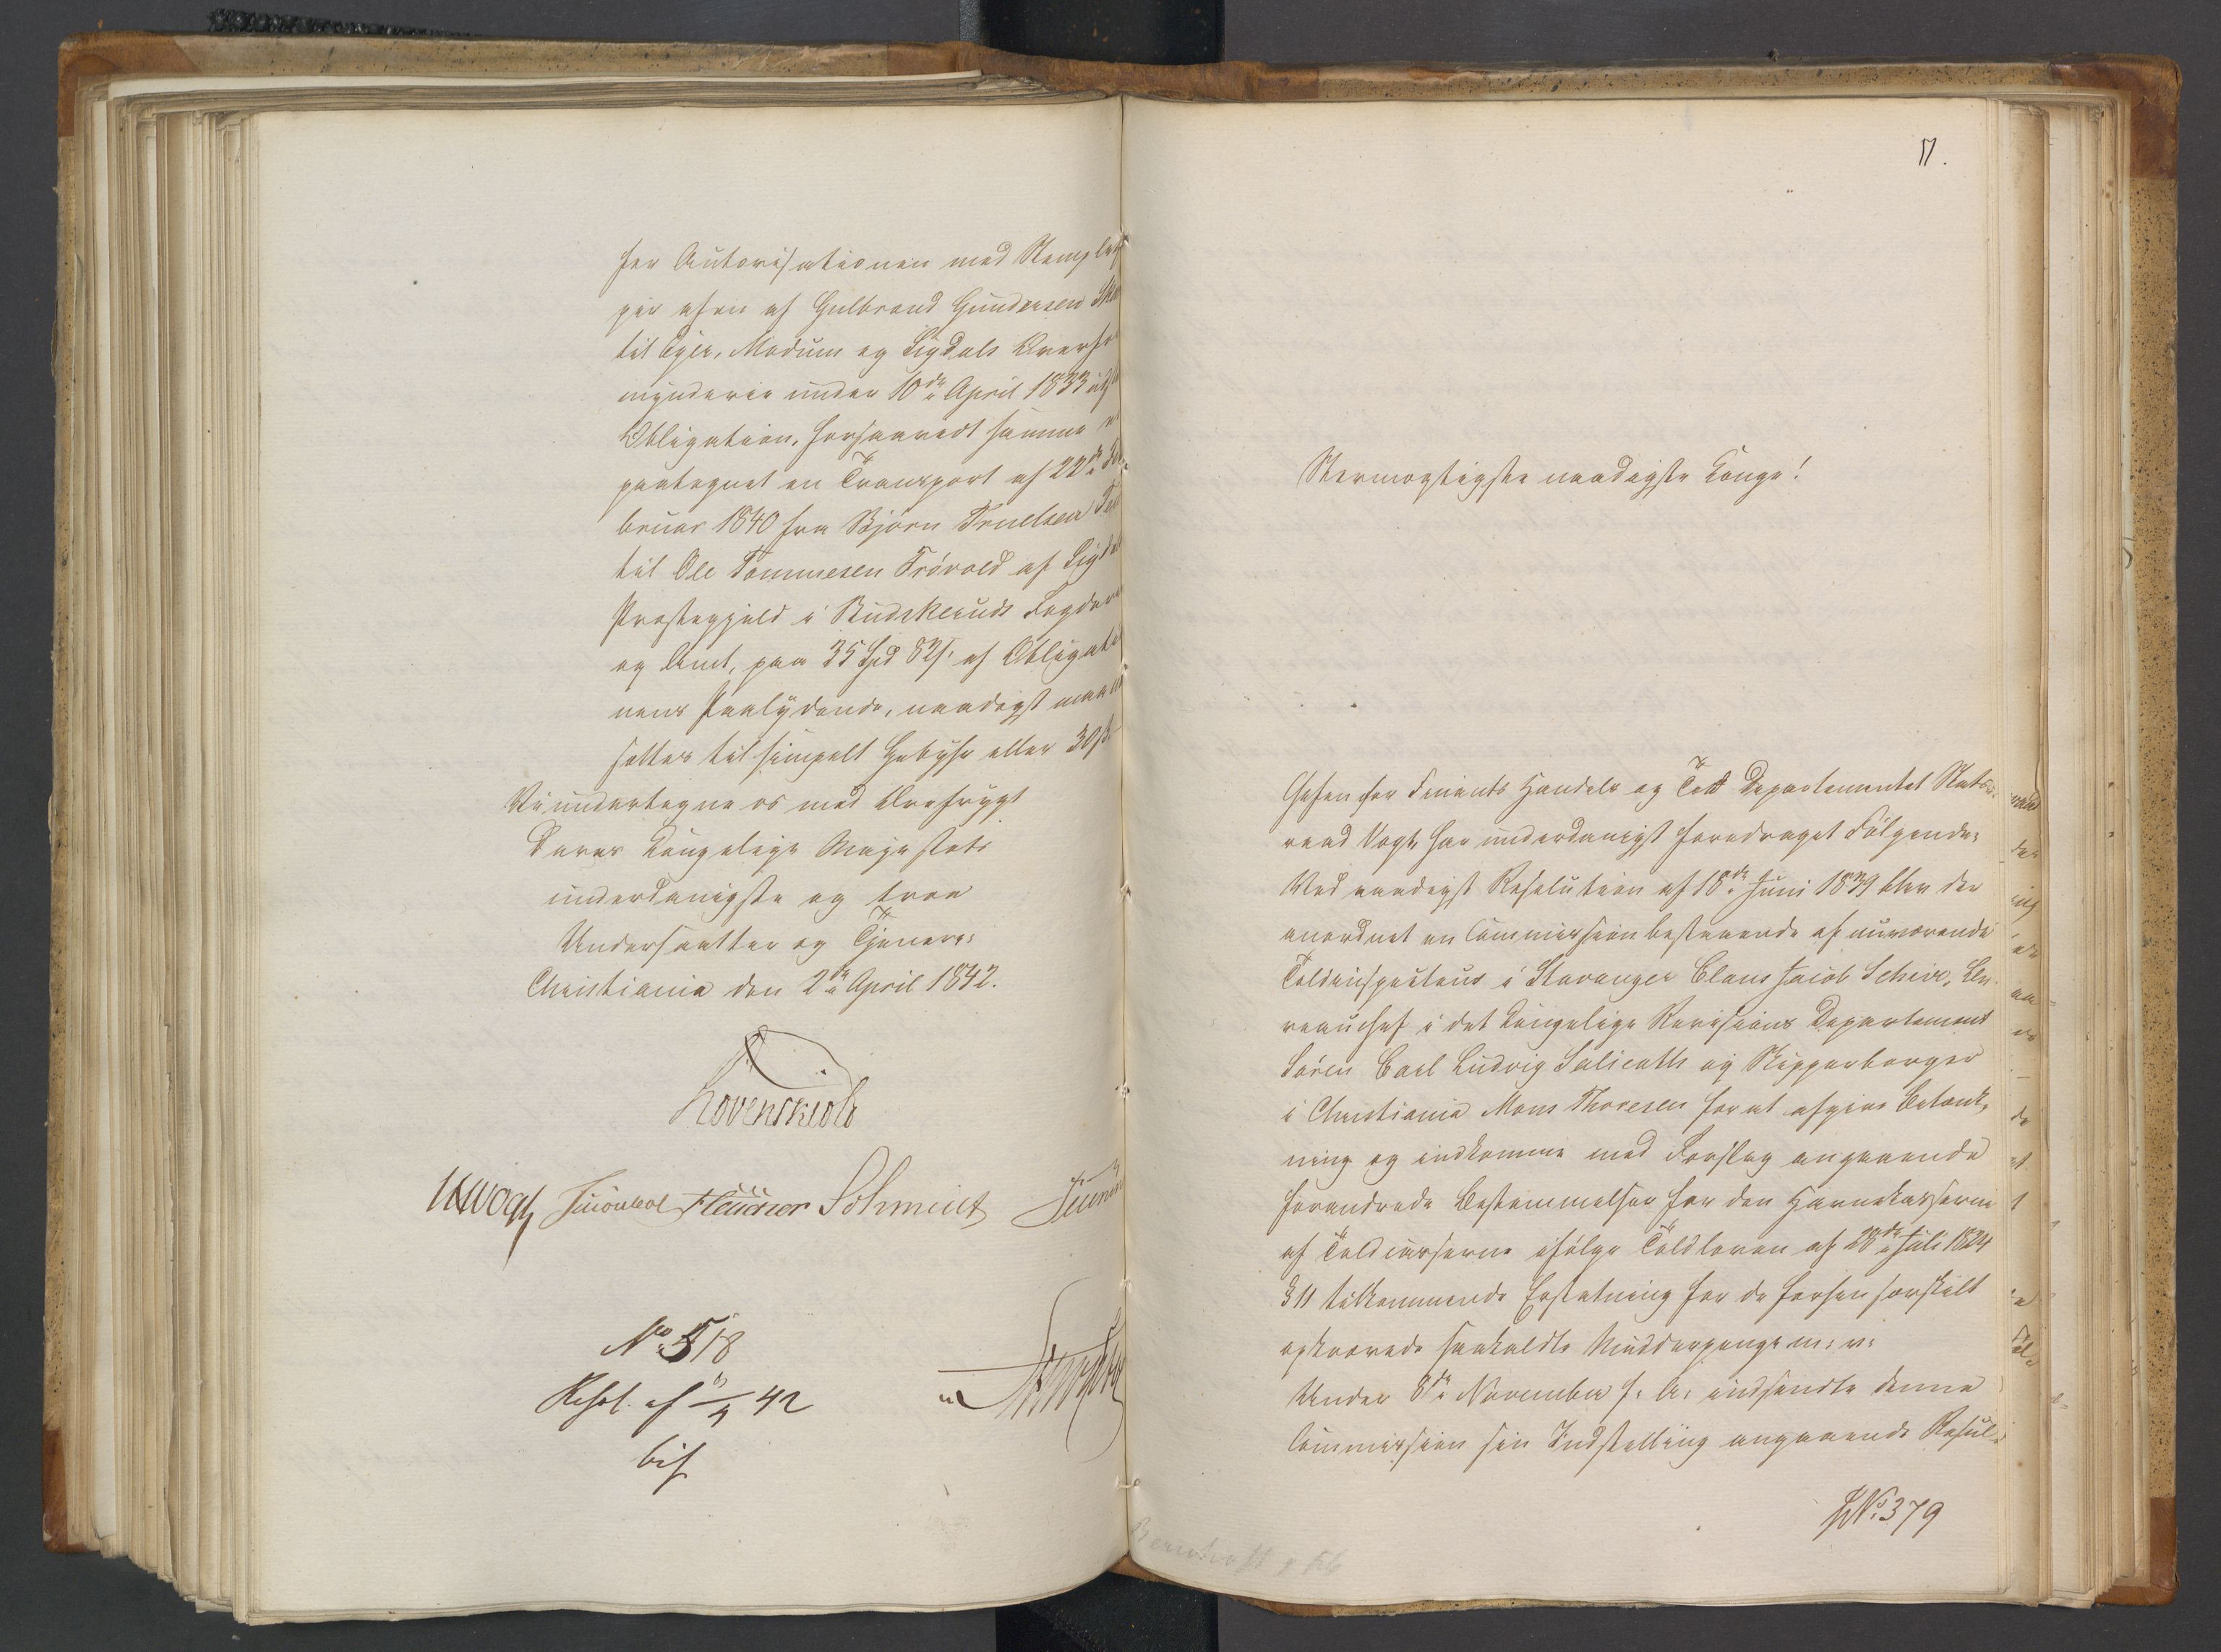 for Autorisationen med Stemplet
per after af Gulbrand Gundersen
til Eger, Modum og Sigdals Overfor
mynderie under 10de April 1833 ud
Obligation, forsaavidt samme
paategnet en Transport af 22de Fe
bruar 1840 fra Bjørn Truelsen
til Ole Tommesen Frøvold af Sigdal
Præstegjeld i Buskeruds Fogderi
og Amt, paa 35 Spd 82ß. af Obligatio
nens Paalydende, naadigst maa
sættes til simpelt Gebyhr eller 30ß.
Vi undertegne os med Ærefrygt
Deres Kongelige Majestæts
underdanigste og troe
Undersaatter og Tjenere.
Christiania den 2de April 1842.
Løvenskiold
Vogt Heidner Schmidt
No. 518
Resol. af 42
bif
11.
Stormægtigste naadigste Konge!
Chefen for Finants Handels og Told Departementet Stats-
raad Vogt har underdanigst foredraget Følgende:
Ved naadigst Resolution af 18de Juni 1839 blev der
anordnet en Commission bestaaende af nuværende
Toldinspecteur i Stavanger Claus Jacob Schive, Bu-
reauchef i det Kongelige Revisions Departement
Søren Carl Ludvig Salicath og Skipperborger
i Christiania Mons Thoresen for at afgive Betænk-
ning og indkomme med Forslag angaaende
forandrede Bestemmelser for den Havnekasserne
af Toldcasserne ifølge Toldloven af 28de Juli 1824
§ 11 tilkommende Erstatning for de forhen særskilt
opkrævede saakaldte Mudderpenge m: v:
Under 8de November s: A: indsendte denne
Commission sin Indstilling angaaende Resul-
No. 379